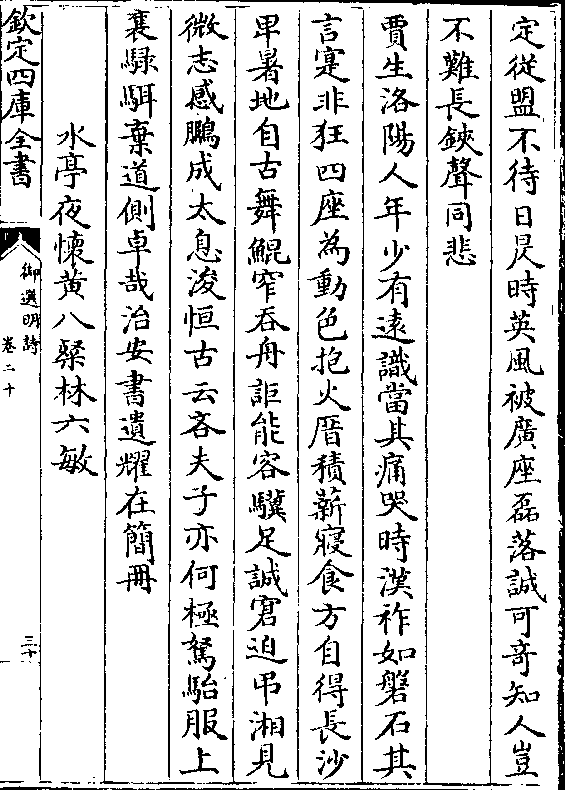 定從盟不待日昃時英風被廣座磊落誠可奇知人豈
不難長鋏聲同悲
賈生洛陽人年少有遠識當其痛哭時漢祚如磐石其
言寔非狂四座為動色抱火厝積薪寢食方自得長沙
卑暑地自古舞鯤窄吞舟詎能容驥足誠窘迫弔湘見
微志感鵩成太息浚恒古云吝夫子亦何極駑駘服上
襄騄駬棄道側卓哉治安書遺耀在簡冊
水亭夜懷黃八粲林六敏
欽定四庫全書
御選明詩
卷二十
三十